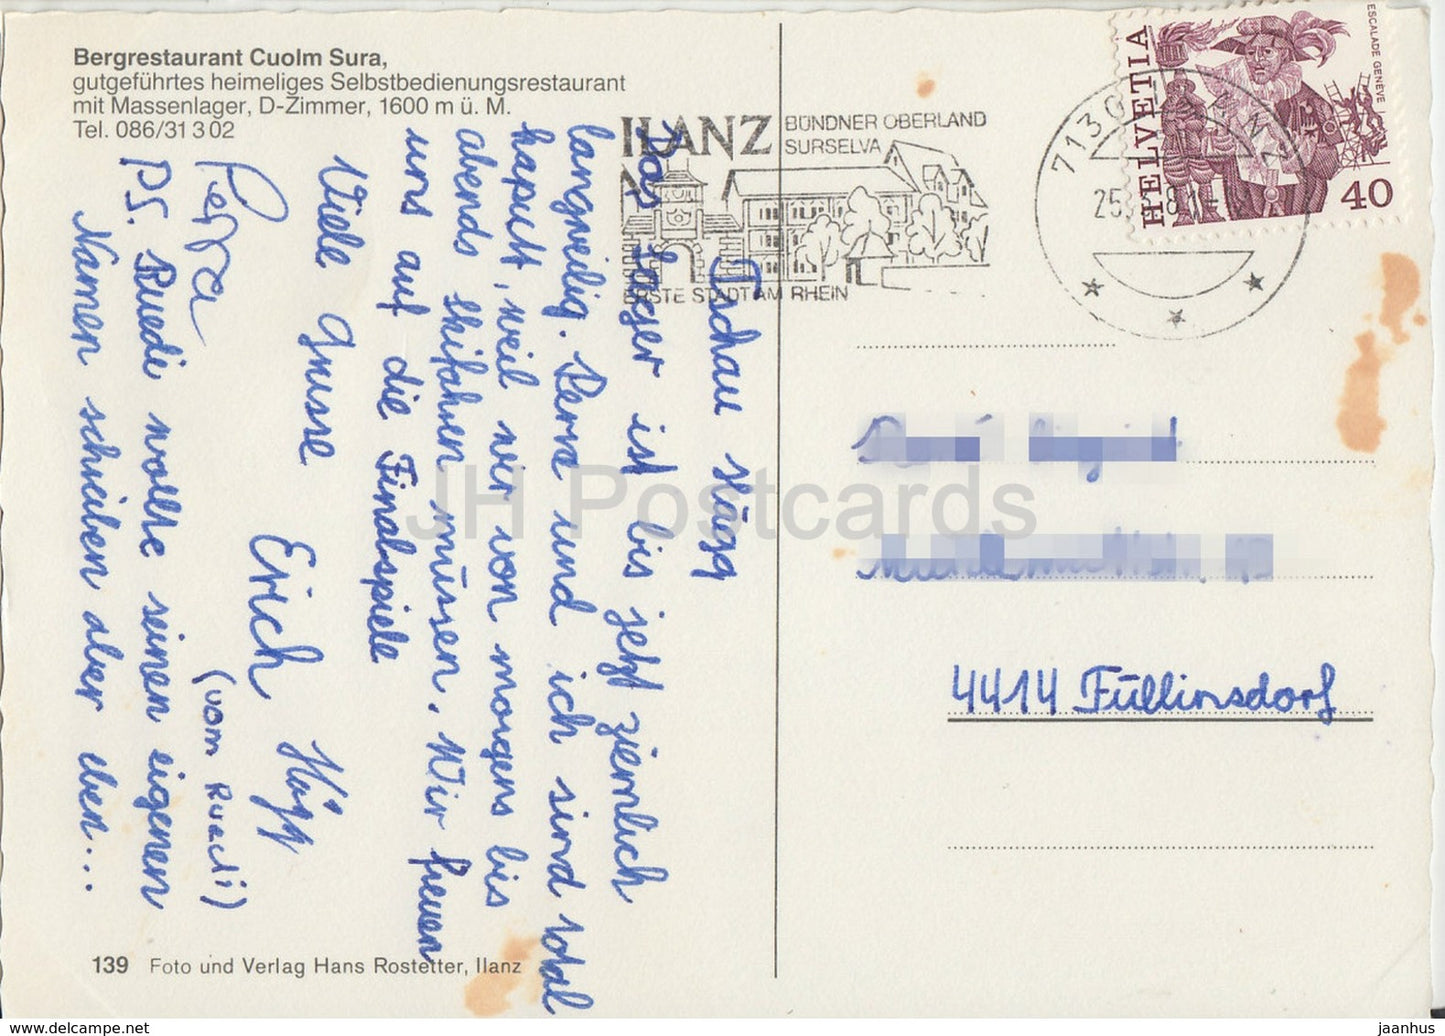 Bergrestaurant Cuolm Sura,
gutgeführtes heimeliges Selbstbedienungsrestaurant
mit Massenlager, D-Zimmer, 1600 m ü. M.
Tel. 086/31 3 02
ILANZ
BÜNDNER OBERLAND
SURSELVA
ERSTE STADT AM RHEIN
7130 ILANZ
25. 81
HELVETIA
ESCALADE GENÈVE
40
Tschau Hügg
Das Lager ist bis jetzt ziemlich
langweilig. Perra und ich sind total
kaputt, weil wir von morgens bis
abends skifahren müssen. Wir freuen
uns auf die Finalspiele
Viele Grüsse
Erich Hügg
Perra
(vom Ruedi)
P.S. Ruedi wollte seinen eigenen
Namen schreiben aber eben...
4414 Füllinsdorf
139 Foto und Verlag Hans Rostetter, Ilanz
JH Postcards
www.delcampe.net
jaanhus